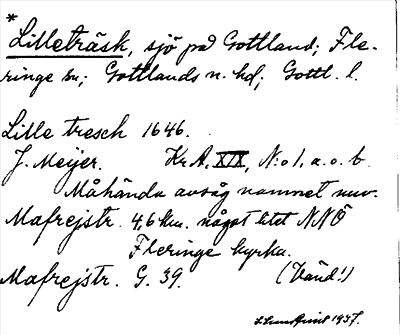 *
Lilleträsk, sjö på Gottland; Fle-
ringe sn; Gottlands n. hd; Gottl. l.
Lille tresch 1646.
J. Meijer. Kr. A. XIX, N:o 1, a. o. b.
Måhända avsåg namnet nuv.
Mafrejstr. 4,6 km. något litet NNÖ
Fleringe kyrka.
Mafrejstr. G. 39. (Vänd!)
1937.